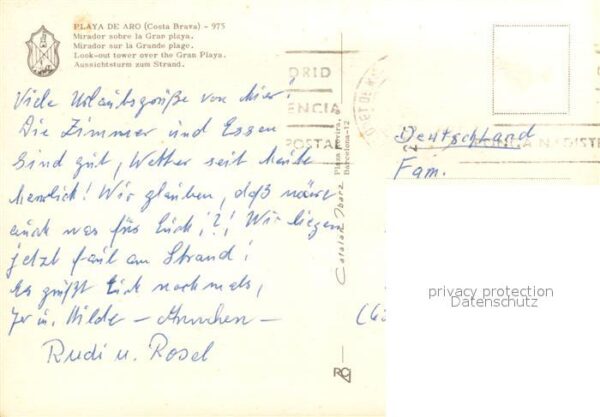 PLAYA DE ARO (Costa Brava) - 975
Mirador sobre la Gran playa.
Mirador sur la Grande plage.
Look-out tower over the Gran Playa.
Aussichtsturm zum Strand.
Viele Urlaubsgrüße von hier!
Die Zimmer und Essen
sind gut, Wetter seit heute
herrlich! Wir glauben, daß wäre
auch was für Euch!?! Wir liegen
jetzt faul am Strand!
Es grüßt Euch nochmals,
u. Hilde -
Rudi u. Rosel
DRID
ENCIA
POSTAL
Barcelona-12
Deutschland
Fam.
privacy protection
Datenschutz